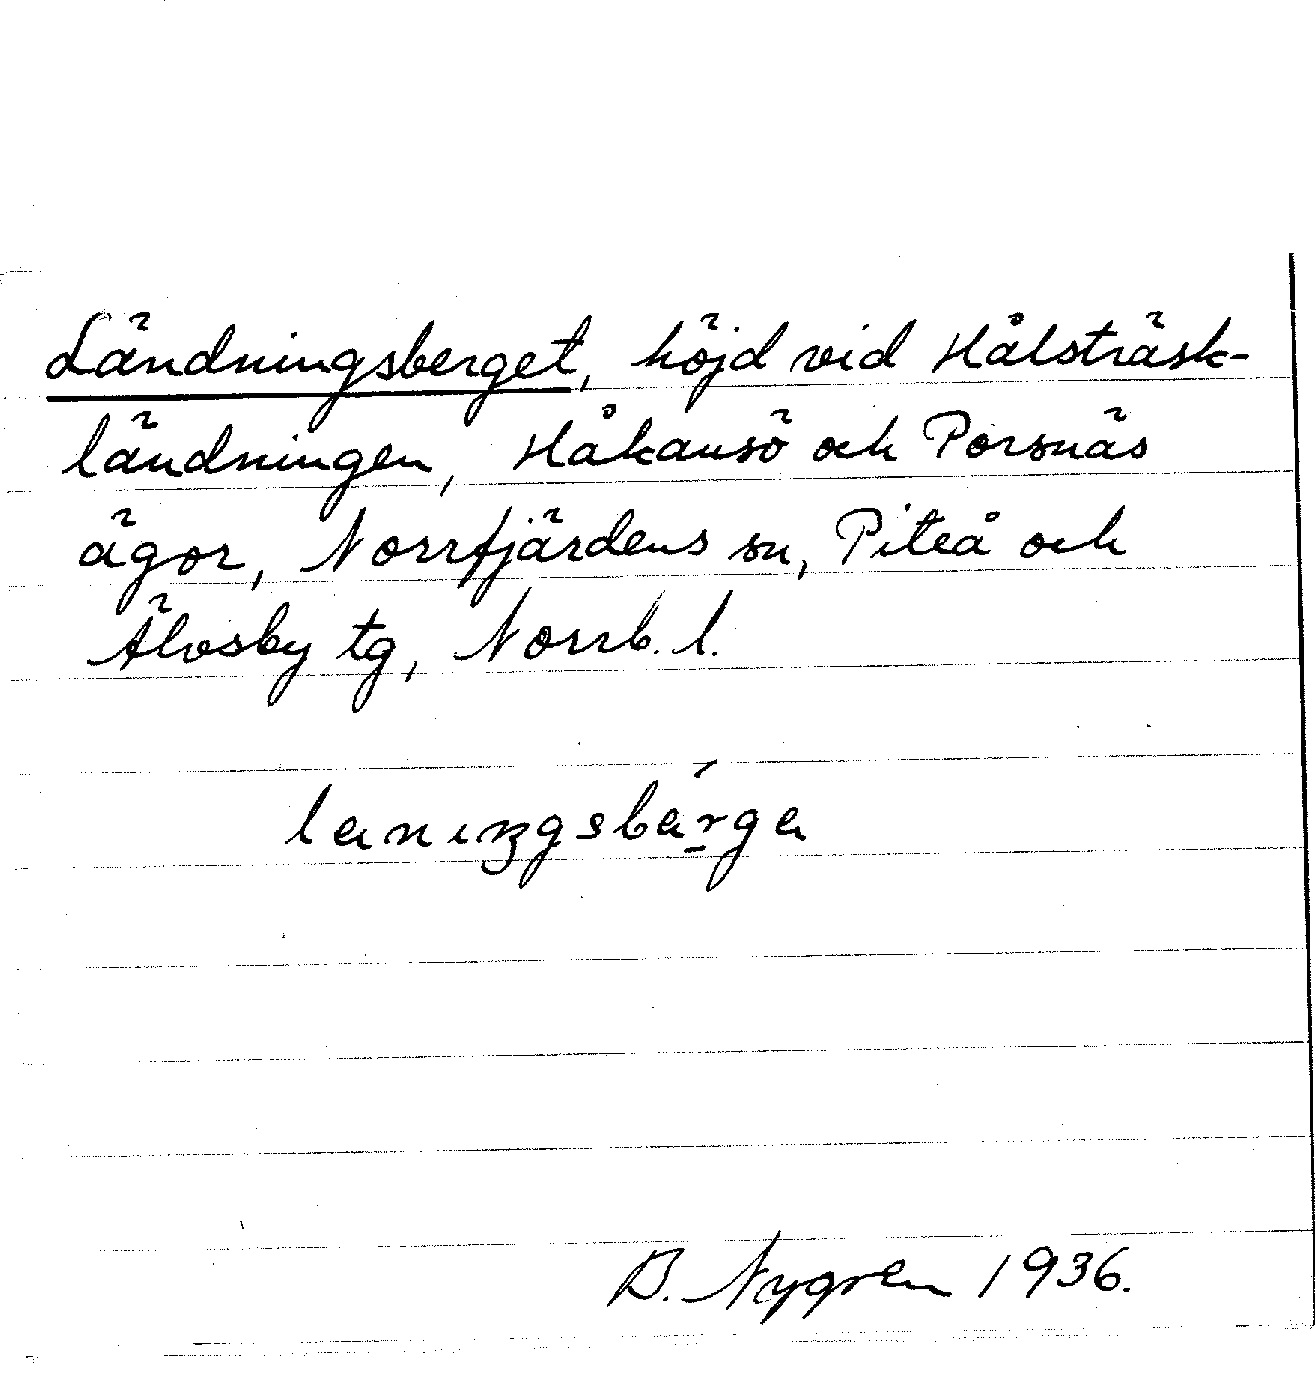 Ländningsberget, höjd vid Hålsträsk-
ländningen, Håkansö och Porsnäs
ägor, Norrfjärdens sn, Piteå och
Älvsby tg, Norrb. l.
B. Nygren 1936.